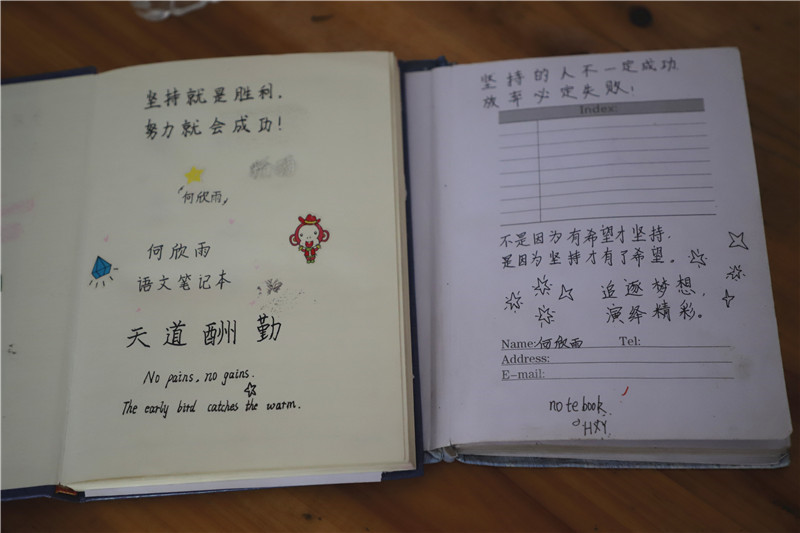 坚持就是胜利.
努力就会成功!
「何欣雨」
何欣雨
语文笔记本
天道酬勤
No pains, no gains.
The early bird catches the warm.
坚持的人不一定成功
放弃必定失败!
Index:
不是因为有希望才坚持.
是因为坚持才有了希望。
追逐梦想,
演绎精彩。
Name:何欣雨 Tel:
Address:
E-mail:
notebook
HXY